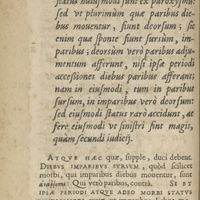 status huiusmodi sunt ex paroxysmo:
sed vt plurimùm quæ paribus die-
bus mouentur, fiunt deorsum; sic
enim quæ sponte fiunt sursum, im-
paribus; deorsùm verò paribus adju-
mentum afferunt, nisi ipsæ periodi
accessiones diebus paribus afferant:
nam in eiusmodi, tum in paribus
sursum, in imparibus verò deorsum:
sed eiusmodi status rarò accidunt, at-
fere eiusmodi vt sinistri fint magis,
quàm secundi iudicij.
Atqve hæc quæ, supple, duci debent.
Diebvs imparibvs svrsvm, quòd scilicet
morbi, qui imparibus diebus mouentur, sunt
Qui verò paribus, contrà. Si et
ipsæ periodi atqve adeo morbi statvs